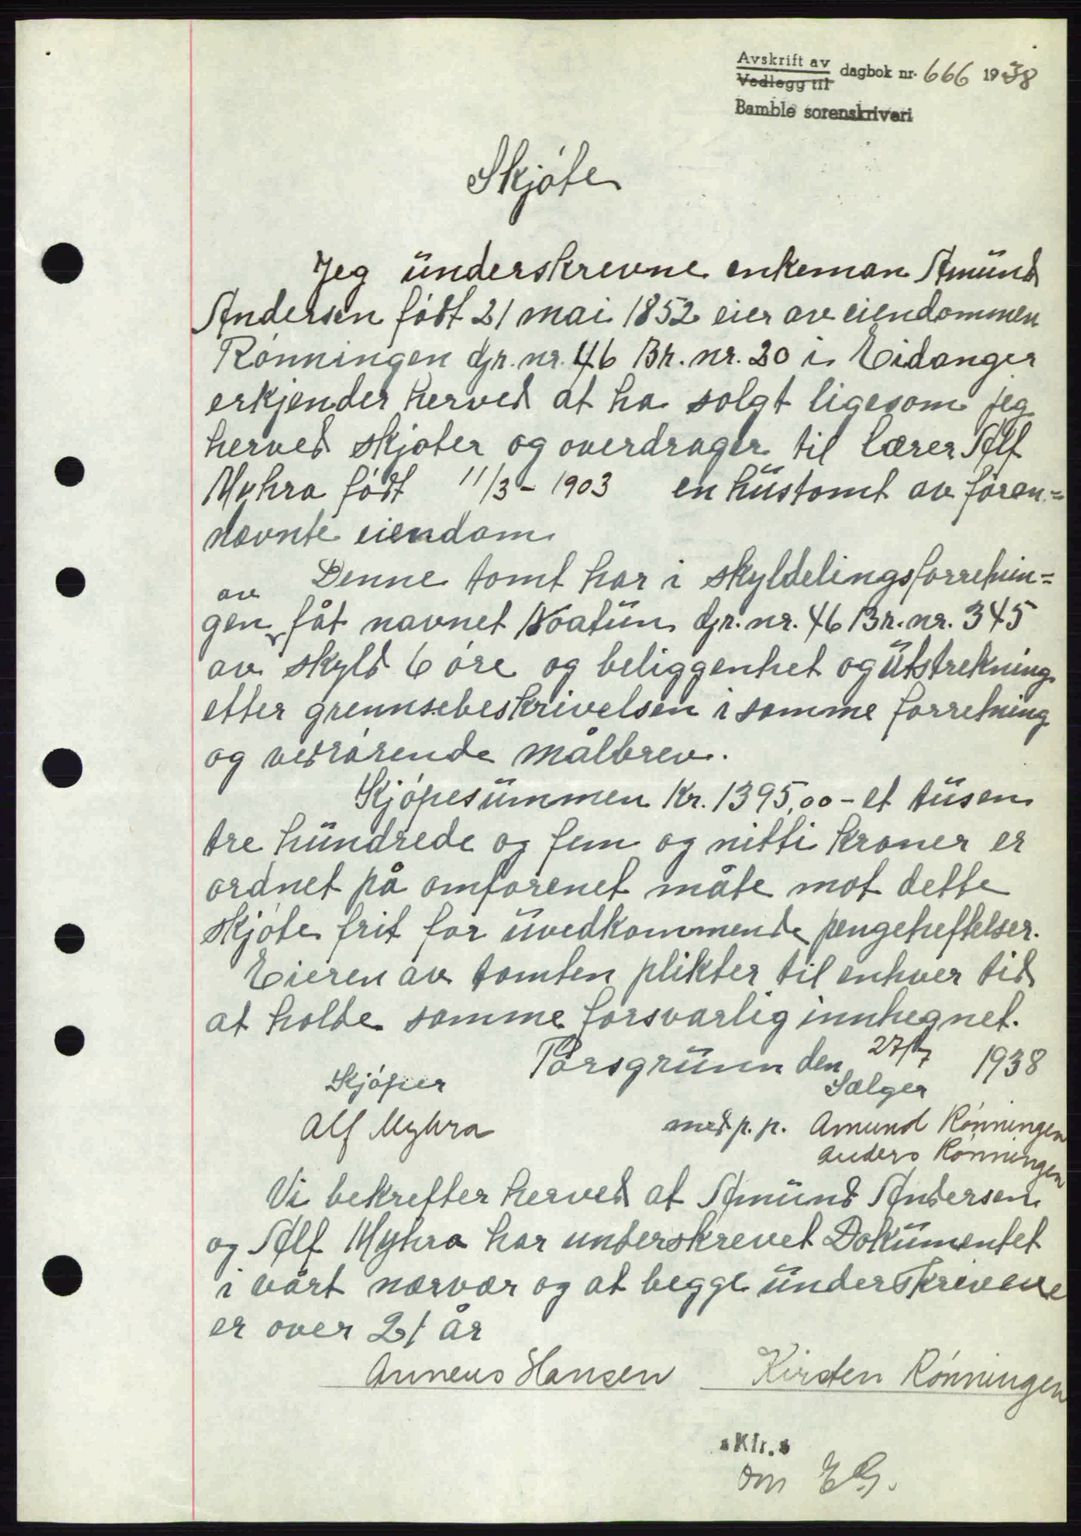 Avskrift av
Vedlegg til
dagbok nr. 666 1938
Bamble sorenskriveri
Skjøte
Jeg underskrevne enkeman Amund
Andersen født 21 mai 1852 eier av eiendommen
Rønningen Gr. nr. 46 Br. nr. 20 i Eidanger
erkjender herved at ha solgt ligesom jeg
herved skjøter og overdrager til lærer Alf
Myhra født 11/3-1903 en hustomt av foran=
nævnte eiendom
Denne tomt har i skyldelingsforretnin=
gen av fåt navnet Noatun Gr. nr. 46 Br. nr. 345
av skyld 6 øre og beliggenhet og utstrekning
etter grennsebeskrivelsen i samme forretning
og vedrørende målbrev.
Kjøpesummen Kr. 1395,00 - et tusen
tre hundrede og fem og nitti kroner er
ordnet på omforenet måte mot dette
skjøte frit for uvedkommende pengeheftelser.
Eieren av tomten plikter til enhver tid
at holde samme forsvarlig innhegnet.
Porsgrunn den 27/7 1938
Kjøper Sælger
Alf Myhra med p. p. Amund Rønningen
Anders Rønningen
Vi bekrefter herved at Amund Andersen
og Alf Myhra har underskrevet Dokumentet
i vårt nærvær og at begge underskrivere
er over 21 år
Anneus Hansen Kirsten Rønningen
Kfr.
om EG.